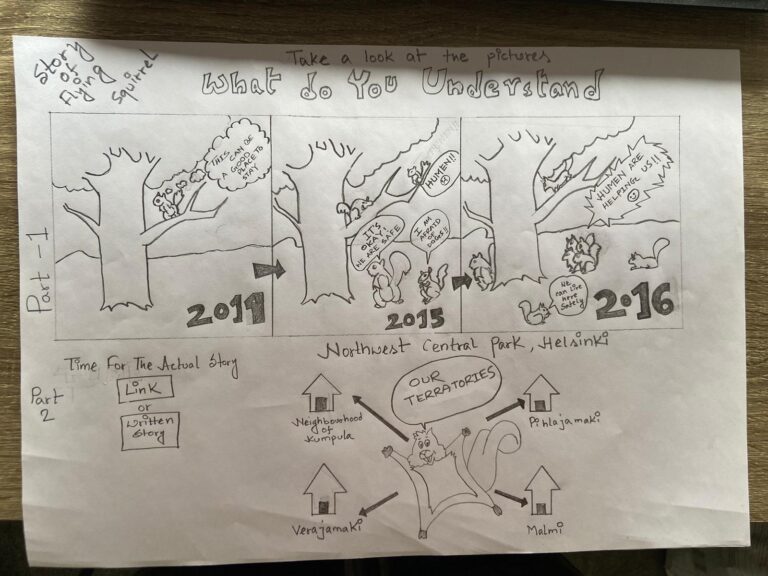 Story
of
Flying
Squirrel
Take a look at the pictures
What do You Understand
Part -1
THIS
CAN BE
A GOOD
PLACE TO
STAY
2011
HUMEN!!
IT'S
OKAY!
WE ARE SAFE
I AM
AFRAID
OF
DOGS!!
2015
HUMEN ARE
HELPING US!!
We
can live
here
Safely
2016
Northwest Central Park, Helsinki
Part
2
Time For The Actual Story
Link
or
Written
Story
OUR
TERRATORIES
Neighbourhood
of
Kumpula
Pihlajamaki
Verajamaki
Malmi